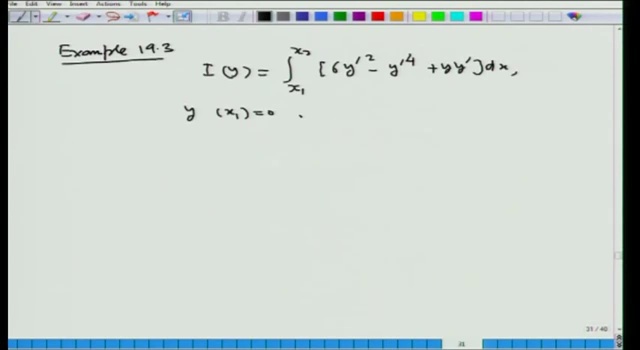 File Edit View Insert Actions Tools Help
Example 19.3
I(y) = ∫_{x₁}^{x₂} [6y'² - y'⁴ + yy']dx,
y (x₁)=0 ,
31 / 40
31